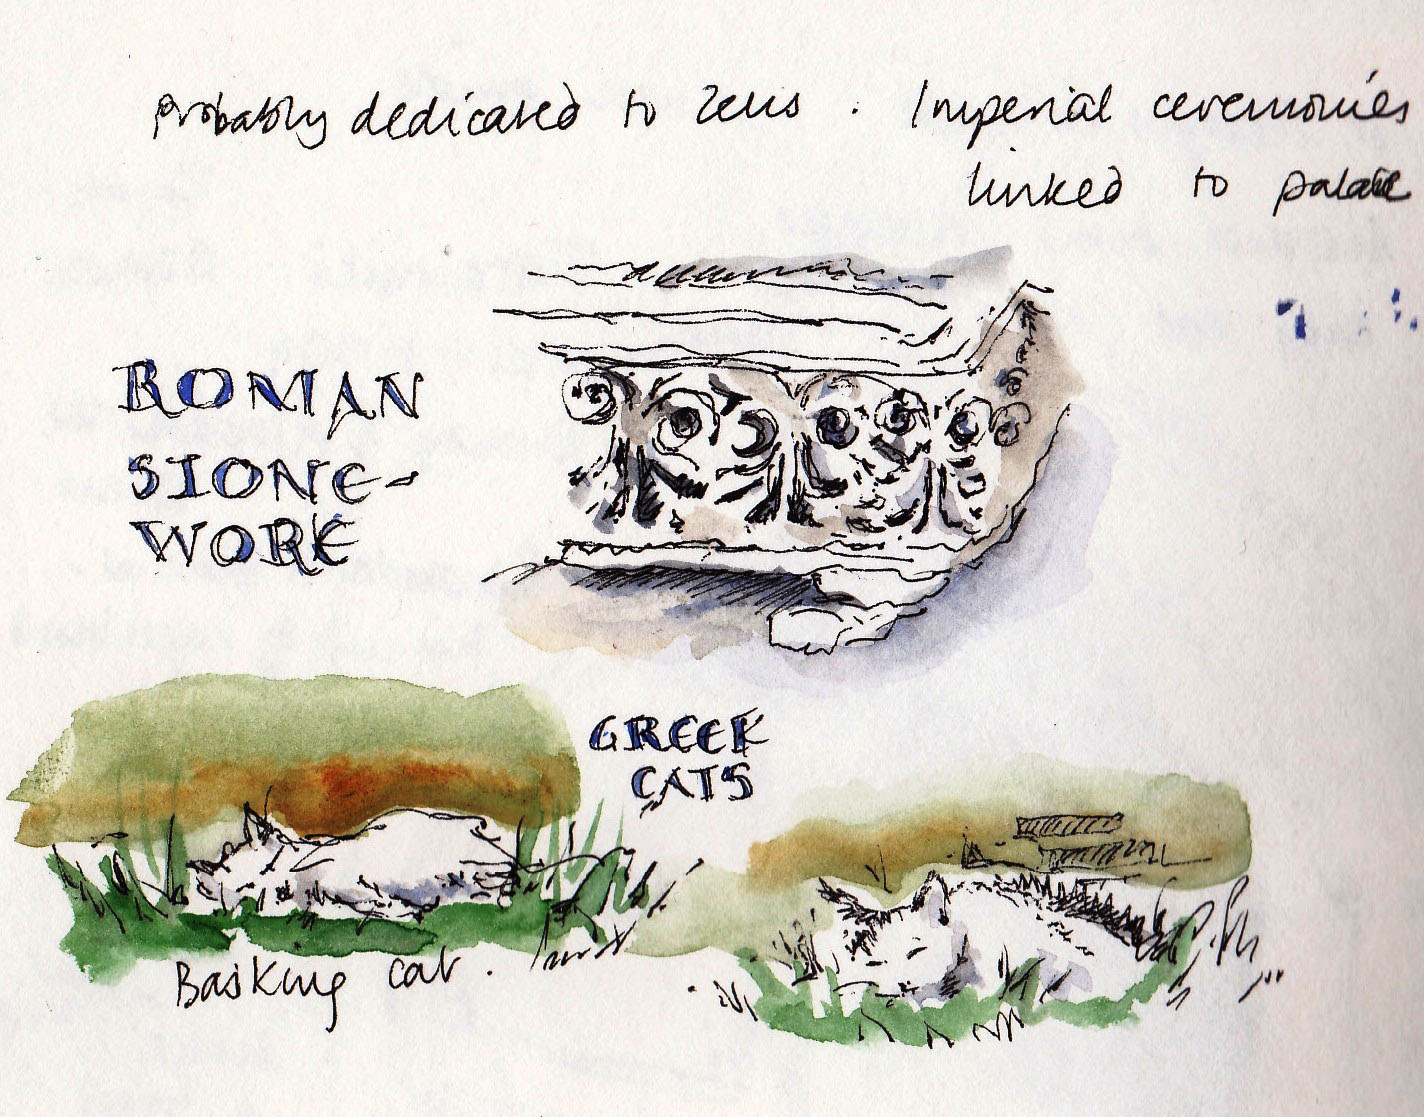 Probably dedicated to Zeus. Imperial ceremonies
linked to palace
ROMAN
STONE-
WORK
GREEK
CATS
Basking cat.